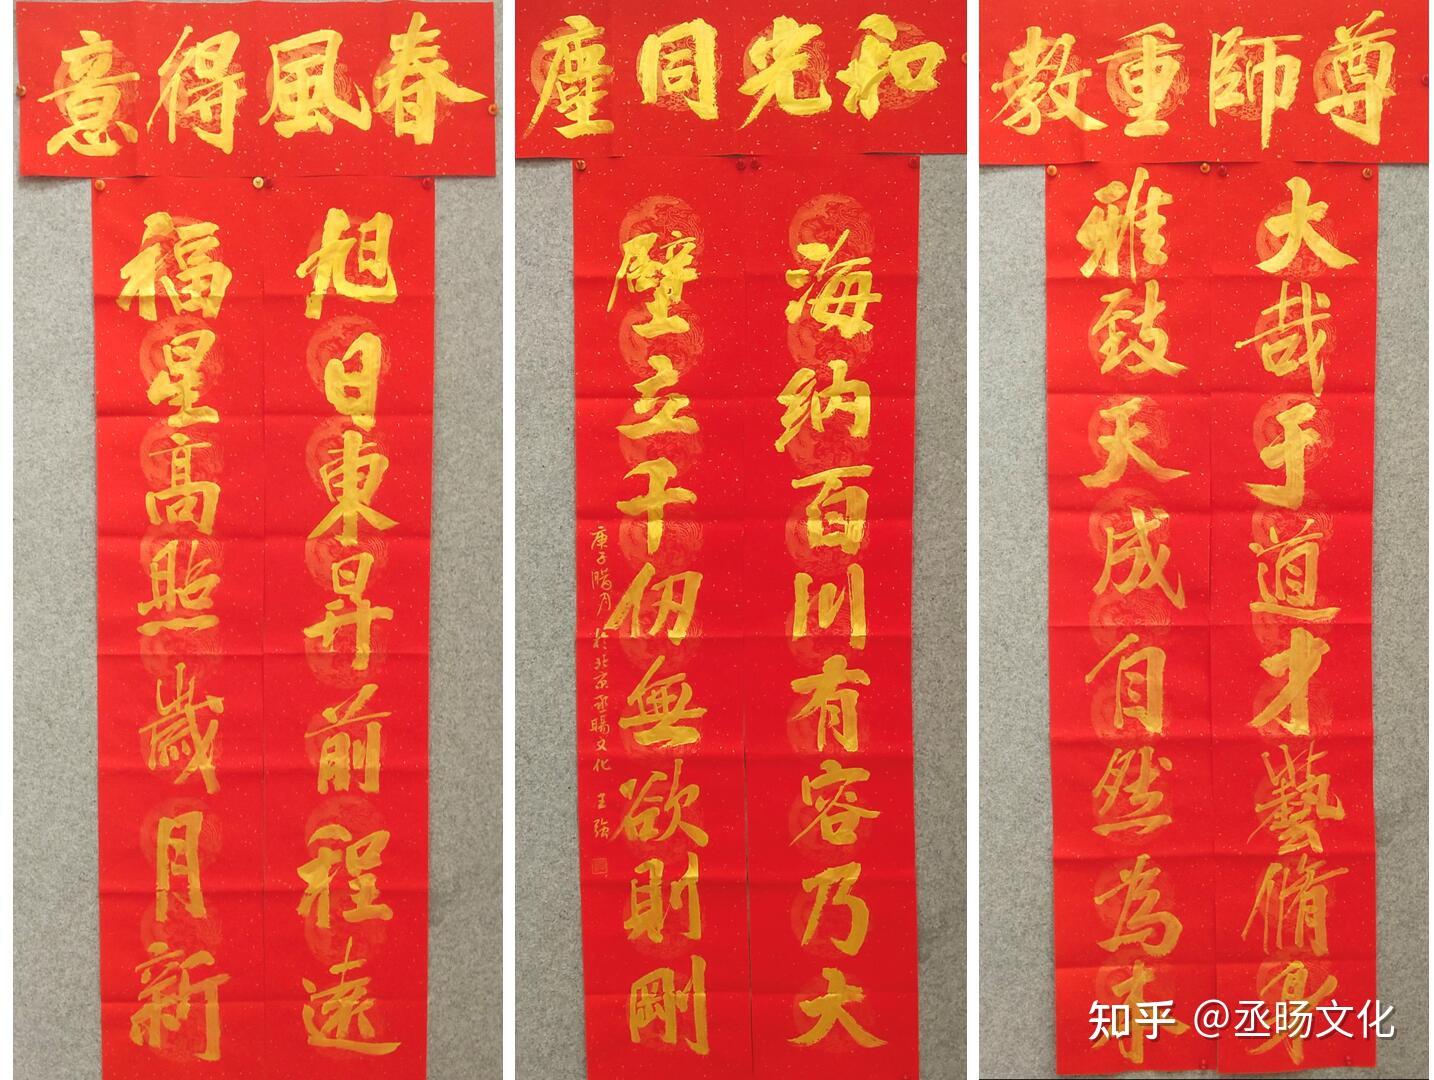 春風得意
旭日東昇前程遠
福星高照歲月新
和光同塵
海纳百川有容乃大
壁立千仞無欲則剛
庚子腊月於北京丞暘文化 王強
尊師重教
大哉于道才藝脩身
雅致天成自然為本
知乎 @丞旸文化